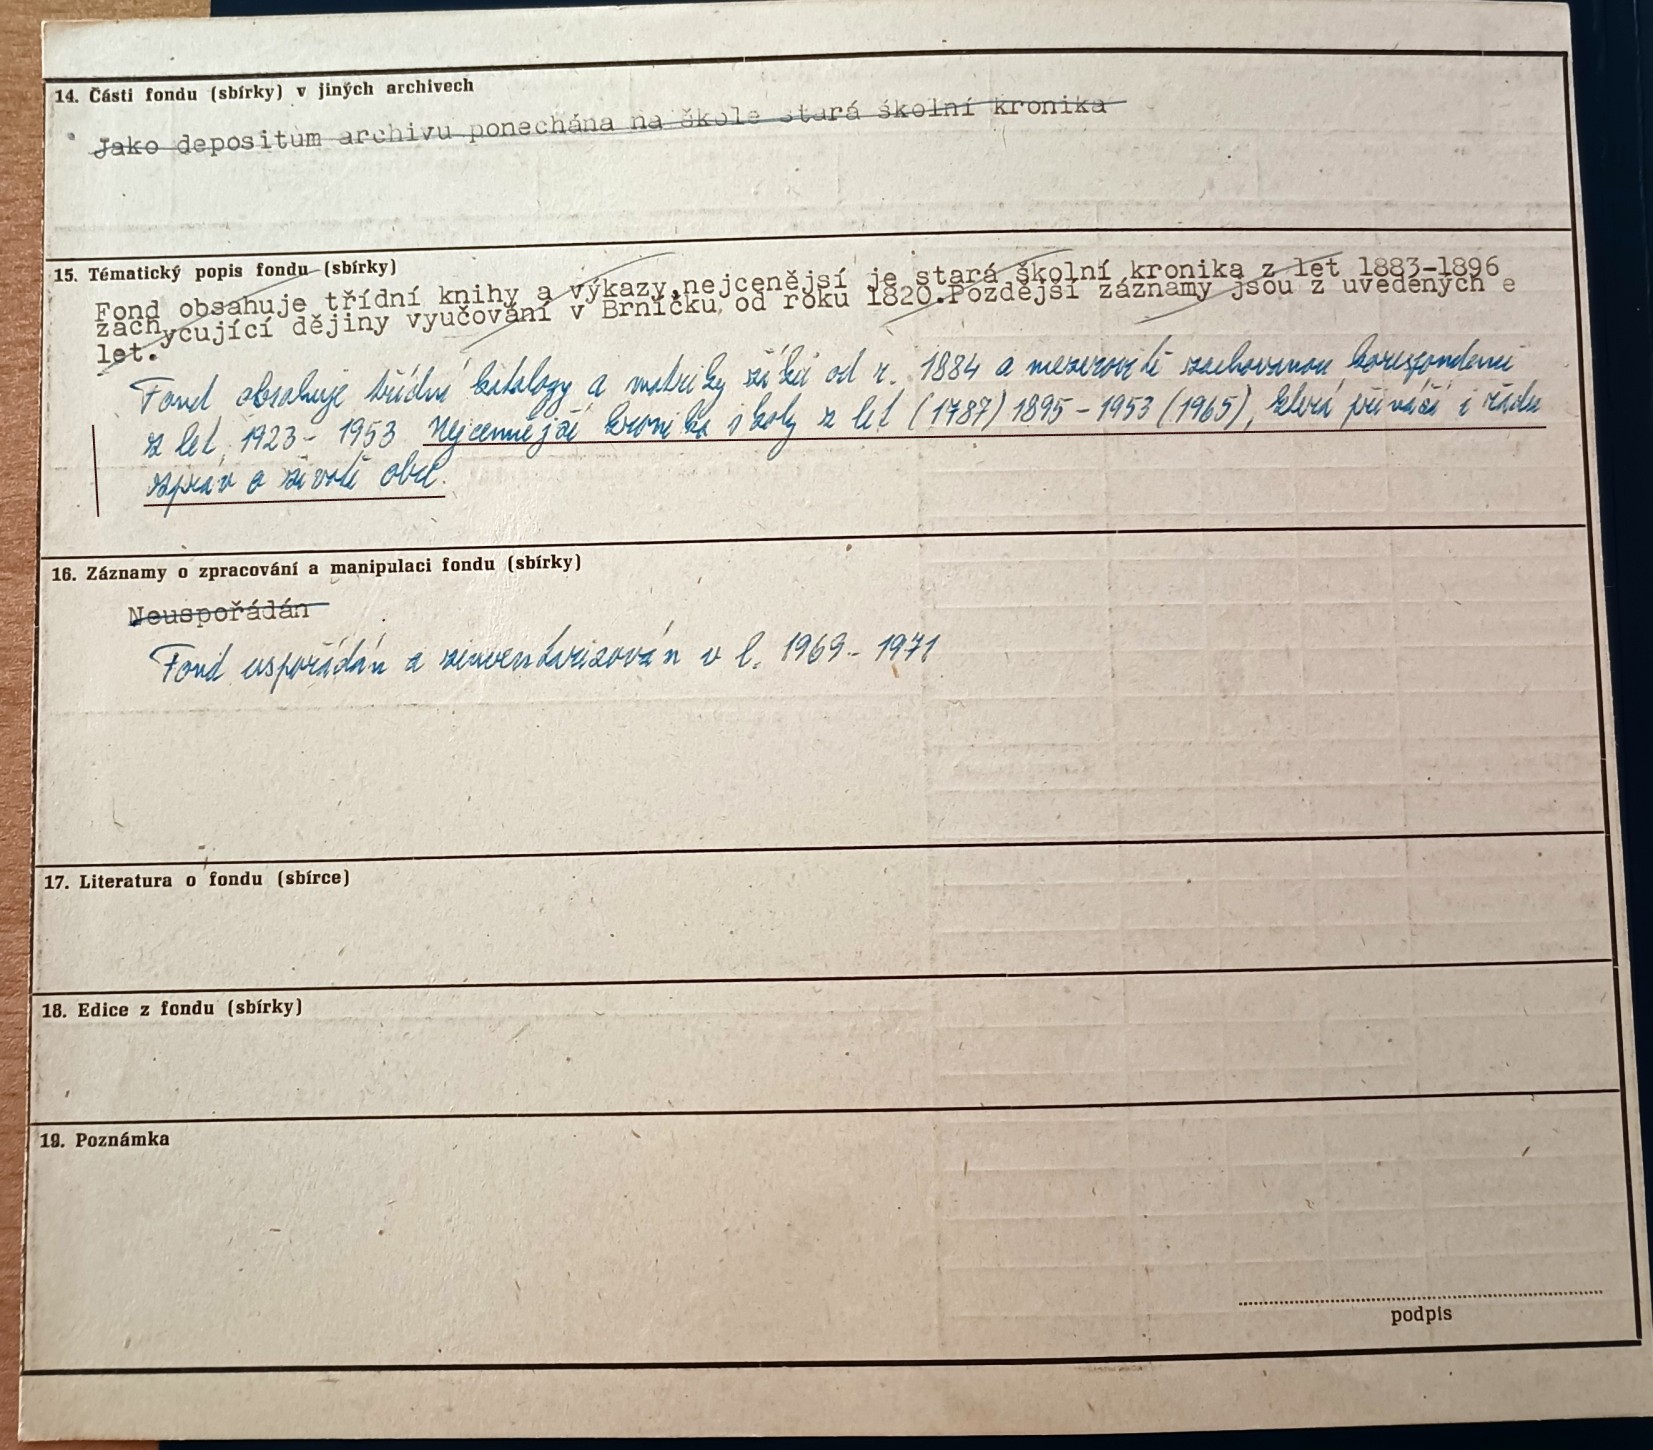 14. Části fondu (sbírky) v jiných archivech
Jako depositum archivu ponechána na škole stará školní kronika
15. Tématický popis fondu (sbírky)
Fond obsahuje třídní knihy a výkazy,nejcenější je stará školní kronika z let 1883-1896
zachycující dějiny vyučování v Brníčku od roku 1820.Pozdější záznamy jsou z uvedených e
let.
Fond obsahuje třídní katalogy a matriky žáků od r. 1884 a mezerovitě zachovanou korespondenci
z let 1923 - 1953 Nejcennější kronika školy z let (1787) 1895 - 1953 (1965), která přináší i řadu
zpráv o životě obce.
16. Záznamy o zpracování a manipulaci fondu (sbírky)
Neuspořádán
Fond uspořádán a zinventarizován v l. 1969 - 1971
17. Literatura o fondu (sbírce)
18. Edice z fondu (sbírky)
19. Poznámka
podpis